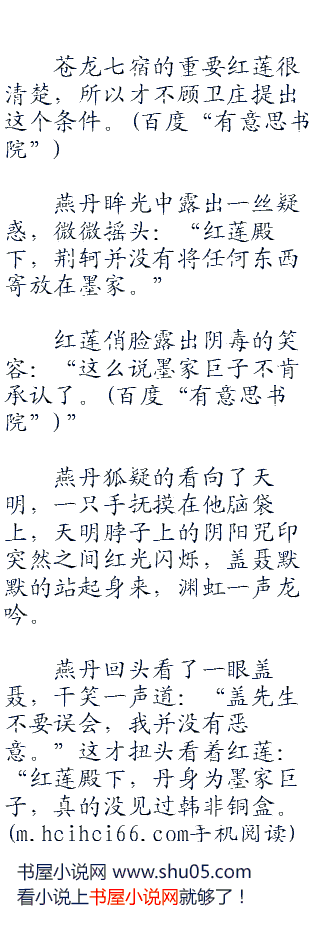 苍龙七宿的重要红莲很
清楚，所以才不顾卫庄提出
这个条件。(百度“有意思书
院”)
燕丹眸光中露出一丝疑
惑，微微摇头：“红莲殿
下，荆轲并没有将任何东西
寄放在墨家。”
红莲俏脸露出阴毒的笑
容：“这么说墨家巨子不肯
承认了。(百度“有意思书
院”)”
燕丹狐疑的看向了天
明，一只手抚摸在他脑袋
上，天明脖子上的阴阳咒印
突然之间红光闪烁，盖聂默
默的站起身来，渊虹一声龙
吟。
燕丹回头看了一眼盖
聂，干笑一声道：“盖先生
不要误会，我并没有恶
意。”这才扭头看着红莲：
“红莲殿下，丹身为墨家巨
子，真的没见过韩非铜盒。
(m.hcihci66.com手机阅读)
书屋小说网 www.shu05.com
看小说上书屋小说网就够了！